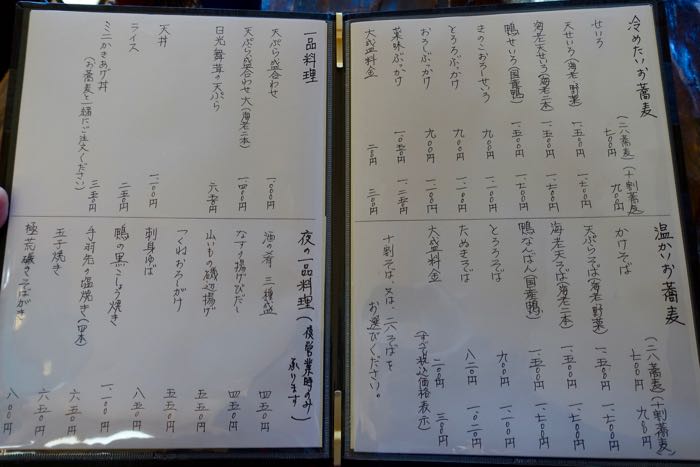 冷めたいお蕎麦
(二八蕎麦) (十割蕎麦)
せいろ 七〇〇円 九〇〇円
天せいろ(海老・野菜) 一、五〇〇円 一、七〇〇円
海老天せいろ(海老二本) 一、五〇〇円 一、七〇〇円
鴨せいろ(国産鴨) 一、五〇〇円 一、七〇〇円
きのこおろしせいろ 九〇〇円 一、一〇〇円
とろろぶっかけ 九〇〇円 一、一〇〇円
おろしぶっかけ 九〇〇円 一、一〇〇円
薬味ぶっかけ 一、〇五〇円 一、二五〇円
大盛料金 二〇〇円 三〇〇円
温かいお蕎麦
(二八蕎麦) (十割蕎麦)
かけそば 七〇〇円 九〇〇円
天ぷらそば(海老・野菜) 一、五〇〇円 一、七〇〇円
海老天そば(海老二本) 一、五〇〇円 一、七〇〇円
鴨なんばん(国産鴨) 一、五〇〇円 一、七〇〇円
とろろそば 九〇〇円 一、一〇〇円
たぬきそば 八二〇円 一、〇二〇円
大盛料金 二〇〇円 三〇〇円
(すべて税込価格表示)
十割そば、又は、二八そばを
お選びください。
一品料理
天ぷら盛合わせ 一、〇〇〇円
天ぷら盛合わせ大(海老二本) 一、四〇〇円
日光舞茸の天ぷら 六五〇円
天丼 一、一〇〇円
ライス 二五〇円
ミニかきあげ丼 三五〇円
(お蕎麦と一緒にご注文ください)
夜の一品料理(夜営業時のみ
承ります)
酒の肴 三種盛 四五〇円
なすの揚げびたし 四五〇円
山いもの磯辺揚げ 五五〇円
つくねおろしがけ 五五〇円
刺身ゆば 八五〇円
鴨の黒こしょう焼き 一、一〇〇円
手羽先の塩焼き(四本) 六五〇円
玉子焼き 六五〇円
極花磯きそばがき 八〇〇円